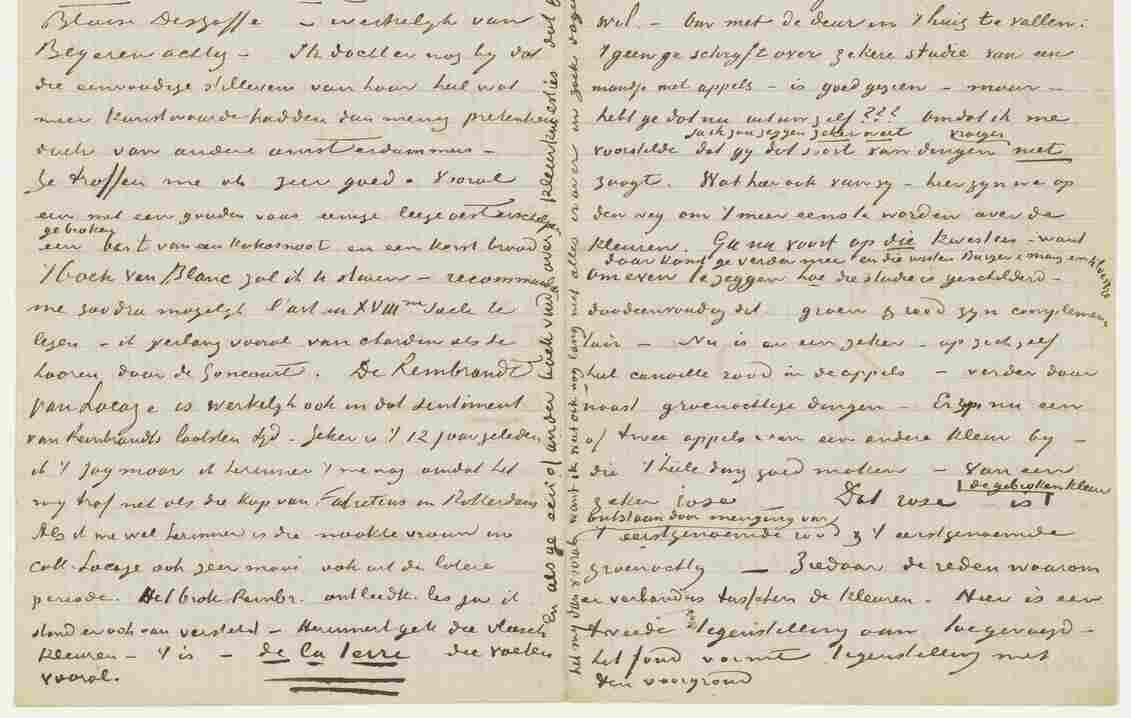 Blaise Desgoffe – werkelyk van
Beyeren achtig – Ik dacht er nog by dat
die eenvoudige stillevens van haar heel wat
meer kunstwaarde hadden dan menig pretentieus
doek van andere amsterdammers –
Ze troffen me als zeer goed. Vooral
een met een gouden vaas eenige leege oesterschelpen
gebroken
een bast van een kokosnoot en een korst brood
't boek van Blanc zal ik te sturen – recommandeer
me zoodra mogelyk l'art au XVIIIme siecle te
lezen – ik verlang vooral van chardin iets te
hooren door de Goncourt. De Rembrandt
van Lacaze is werkelyk ook in dat sentiment
van Rembrandts laatsten tyd – zeker is 't 12 jaar geleden
ik 't zag maar ik herinner 't me nog omdat het
my trof net als die kop van Fabritius in Rotterdam
Als ik me wel herinner is die naakte vrouw in
coll. Lacaze ook zeer mooi ook uit de latere
periode. Het brok Rembr. ontleedk. les ja ik
stond er ook van versteld – Herinnert ge U die vleesch
kleuren – 't is – de la terre die voeten
vooral.
En als ge een of ander boek vindt over die kleurkwesties
wil – Om met de deur in 't huis te vallen.
't geen ge schryft over zekere studie van een
mandje met appels – is goed gezien – maar –
hebt ge dat nu uit uw zelf??? Omdat ik me
ja ik zou zeggen zeker weet vroeger
voorstelde dat gy dat soort van dingen niet
zaagt. Wat hier ook van zy – hier zyn we op
den weg om 't meer eens te worden over de
kleuren. Ga nu voort op die kwesties – want
daar komt ge verder mee en die wisten Burger & Mantz en Silvestre
Om even te zeggen hoe die studie is geschilderd –
doodeenvoudig dit groen & rood zyn complemen-
tair – Nu is er een zeker – op zich zelf
heel canaille rood in de appels – verder daar
naast groenachtige dingen – Er zyn nu een
of twee appels van een andere kleur by –
die 't heele ding goed maken – van een
zeker rose Dat rose – is
de gebroken kleur
ontstaan door menging van
't eerstgenoemde rood & 't eerstgenoemde
groenachtig – Ziedaar de reden waarom
er verband is tusschen de kleuren. Hier is een
tweede tegenstelling aan toegevoegd –
het fond vormt tegenstelling met
den voorgrond